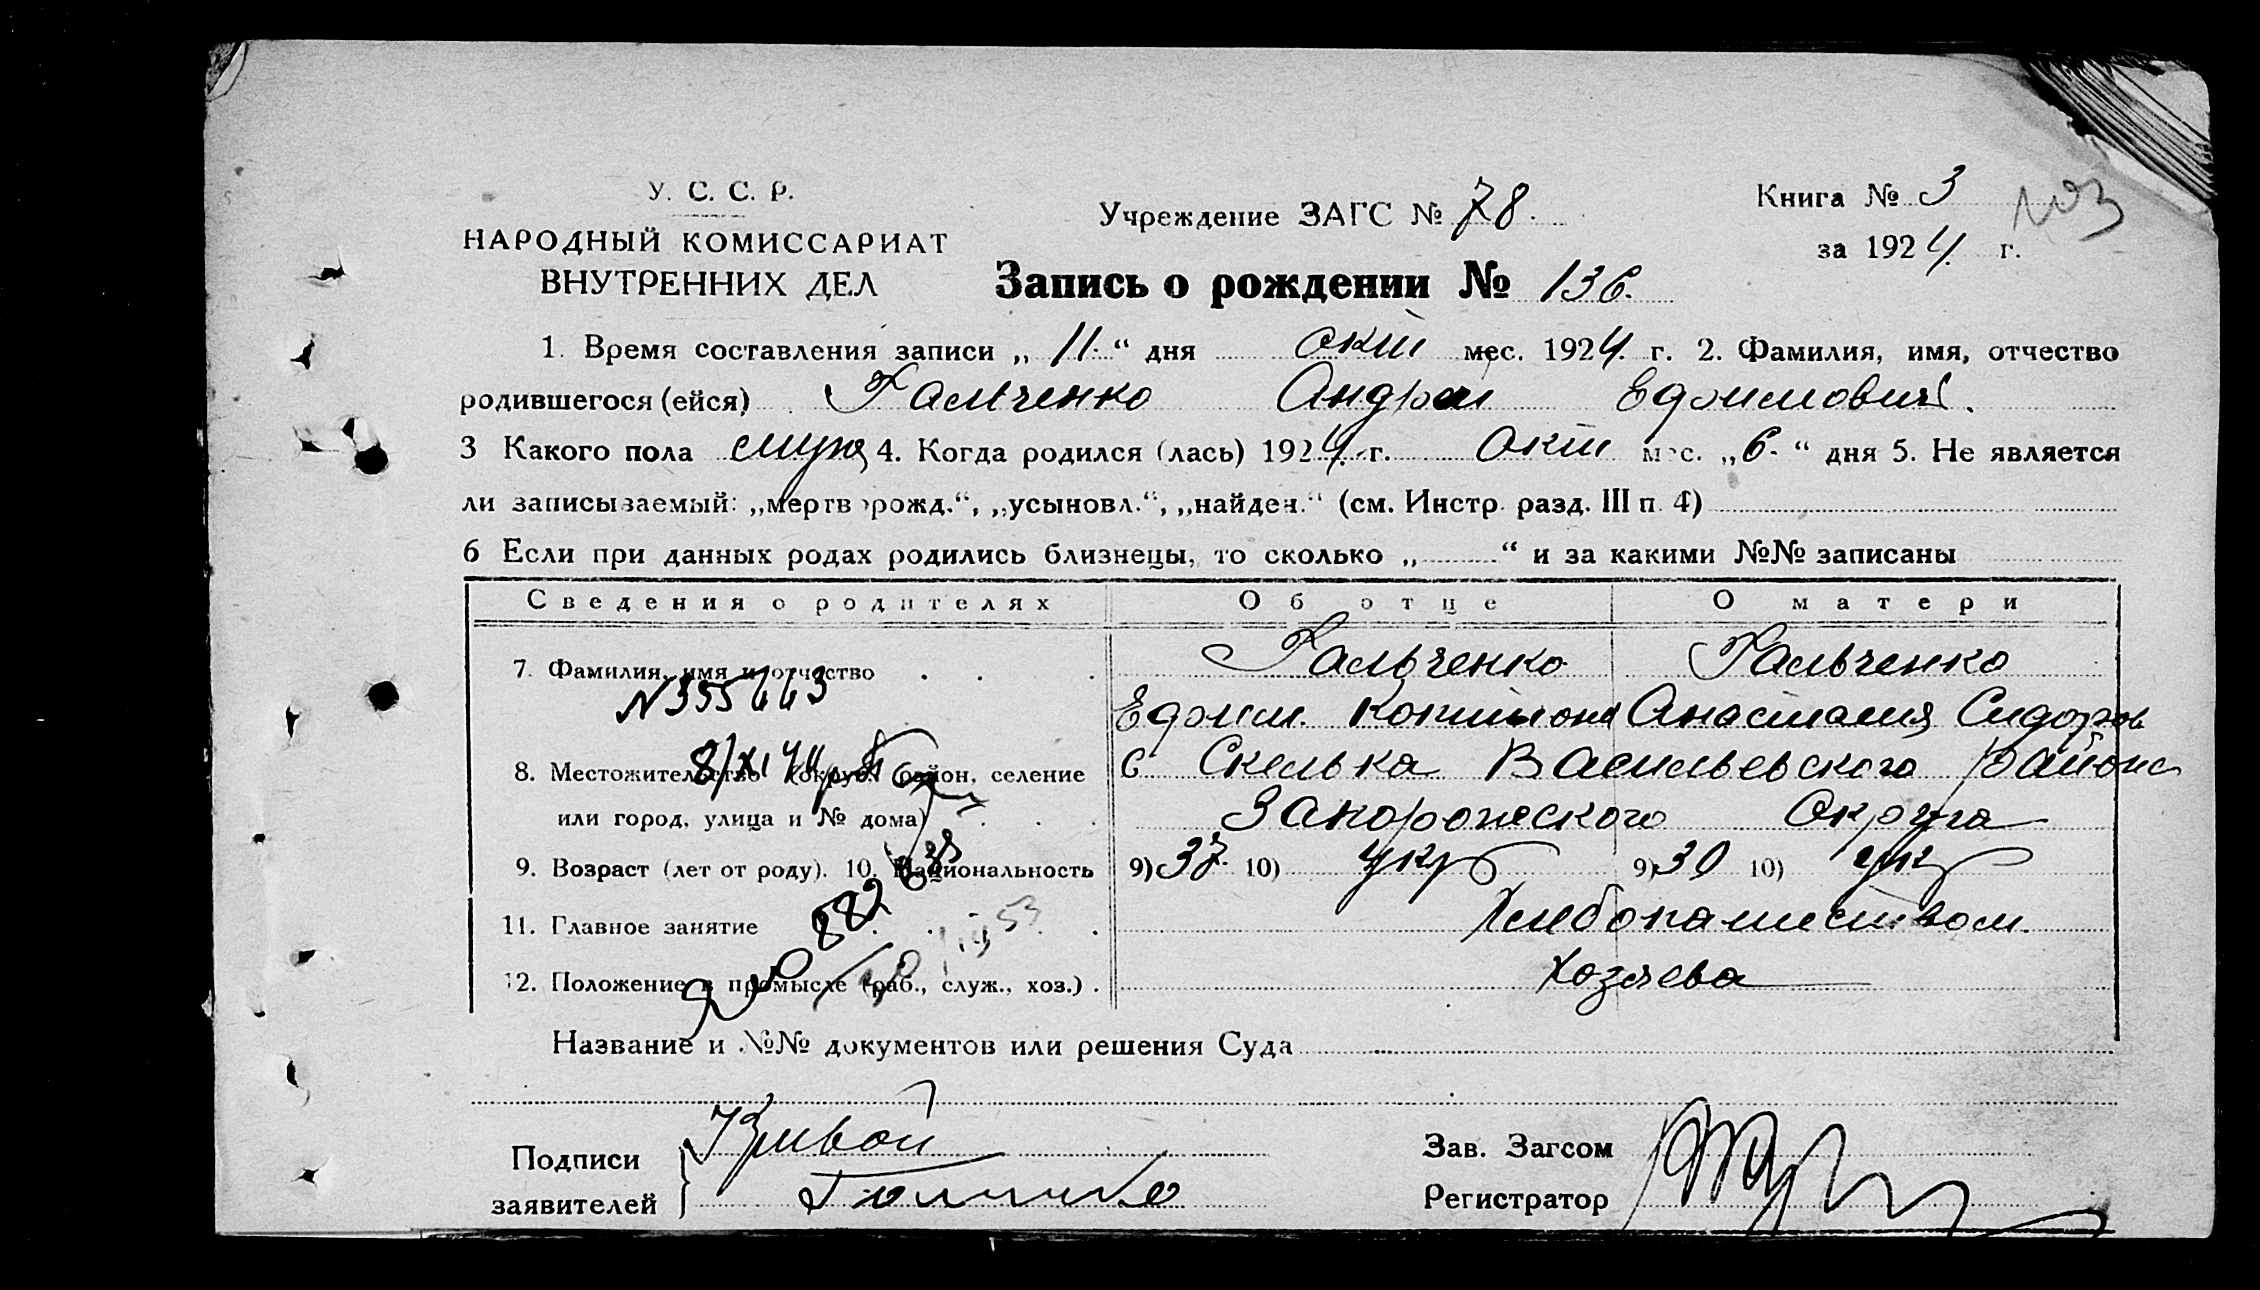 У. С. С. Р.
НАРОДНЫЙ КОМИССАРИАТ
ВНУТРЕННИХ ДЕЛ
Учреждение ЗАГС № 78.
Книга № 3
103
за 1924 г.
Запись о рождении № 136.
1. Время составления записи „ 11. “ дня окт мес. 1924 г. 2. Фамилия, имя, отчество
родившегося (ейся) Гальченко Андрей Ефимович.
3 Какого пола муж 4. Когда родился (лась) 1924 г. окт мес. „ 6. “ дня 5. Не является
ли записываемый: „мертворожд.“, „усыновл.“, „найден.“ (см. Инстр. разд. III п. 4)
6 Если при данных родах родились близнецы, то сколько „ “ и за какими №№ записаны
Сведения о родителях Об отце О матери
7. Фамилия, имя и отчество Гальченко Гальченко
Ефим Анастасия Сидоров
8. Местожительство (округ, район, селение с Скелька Васильевского Района
или город, улица и № дома) Запорожского Округа
9. Возраст (лет от роду). 10. Национальность 9) 37. 10) укр 9) 30 10) укр
11. Главное занятие Хлебопашеством.
12. Положение в промысле (раб., служ., хоз.) Хозяева
Название и №№ документов или решения Суда
Подписи Кривой
заявителей
Зав. Загсом
Регистратор